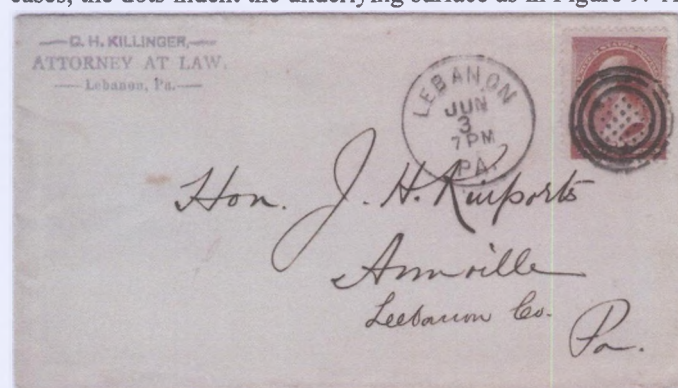 cases, the dots indent the underlying surface as in Figure
C. H. KILLINGER,
ATTORNEY AT LAW,
Lebanon, Pa.
LEBANON
JUN
3
7 PM
PA.
Hon. J. H.
Annville
Lebanon Co.
Pa.